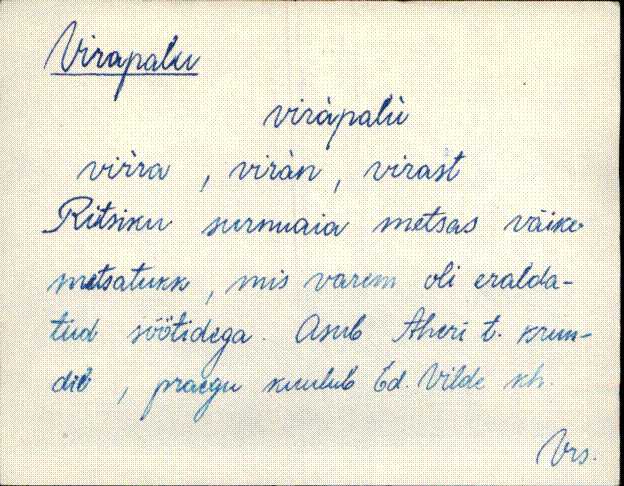 Virapalu
viràpalù
vir̀ra, viràn, virast
Ritsiku surnuaia metsas väike
metsatukk, mis varem oli eralda-
tud söötidega. Asub Aheri t. krun-
dil, praegu kuulub Ed. Vilde kh.
Vrs.